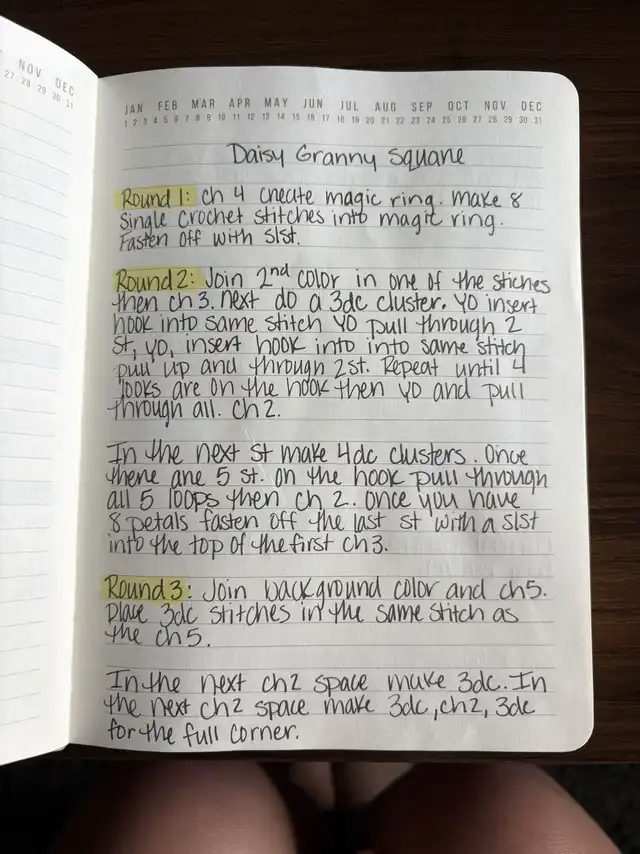 NOV DEC
27 28 29 30 31
JAN FEB MAR APR MAY JUN JUL AUG SEP OCT NOV DEC
1 2 3 4 5 6 7 8 9 10 11 12 13 14 15 16 17 18 19 20 21 22 23 24 25 26 27 28 29 30 31
Daisy Granny Square
Round 1: ch 4 create magic ring. make 8
Single crochet stitches into magic ring.
Fasten off with slst.
Round 2: Join 2nd color in one of the stiches
then ch 3. next do a 3dc cluster. YO insert
hook into same stitch YO pull through 2
st, yo, insert hook into into same stitch
pull up and through 2st. Repeat until 4
looks are on the hook then yo and pull
through all. ch 2.
In the next st make 4dc clusters. Once
there are 5 st. on the hook pull through
all 5 loops then ch 2. once you have
8 petals fasten off the last st with a slst
into the top of the first ch3.
Round 3: Join background color and ch5.
Place 3dc stitches in the same stitch as
the ch5.
In the next ch2 space make 3dc. In
the next ch2 space make 3dc, ch2, 3dc
for the full corner.